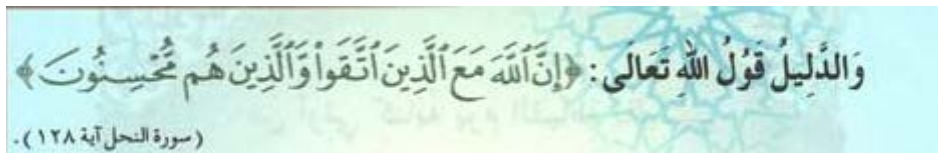 وَالدَّلِيلُ قَوْلُ اللهِ تَعَالَى: ﴿إِنَّ ٱللَّهَ مَعَ ٱلَّذِينَ ٱتَّقَواْ وَّٱلَّذِينَ هُم مُّحۡسِنُونَ﴾
(سورة النحل آية ١٢٨).